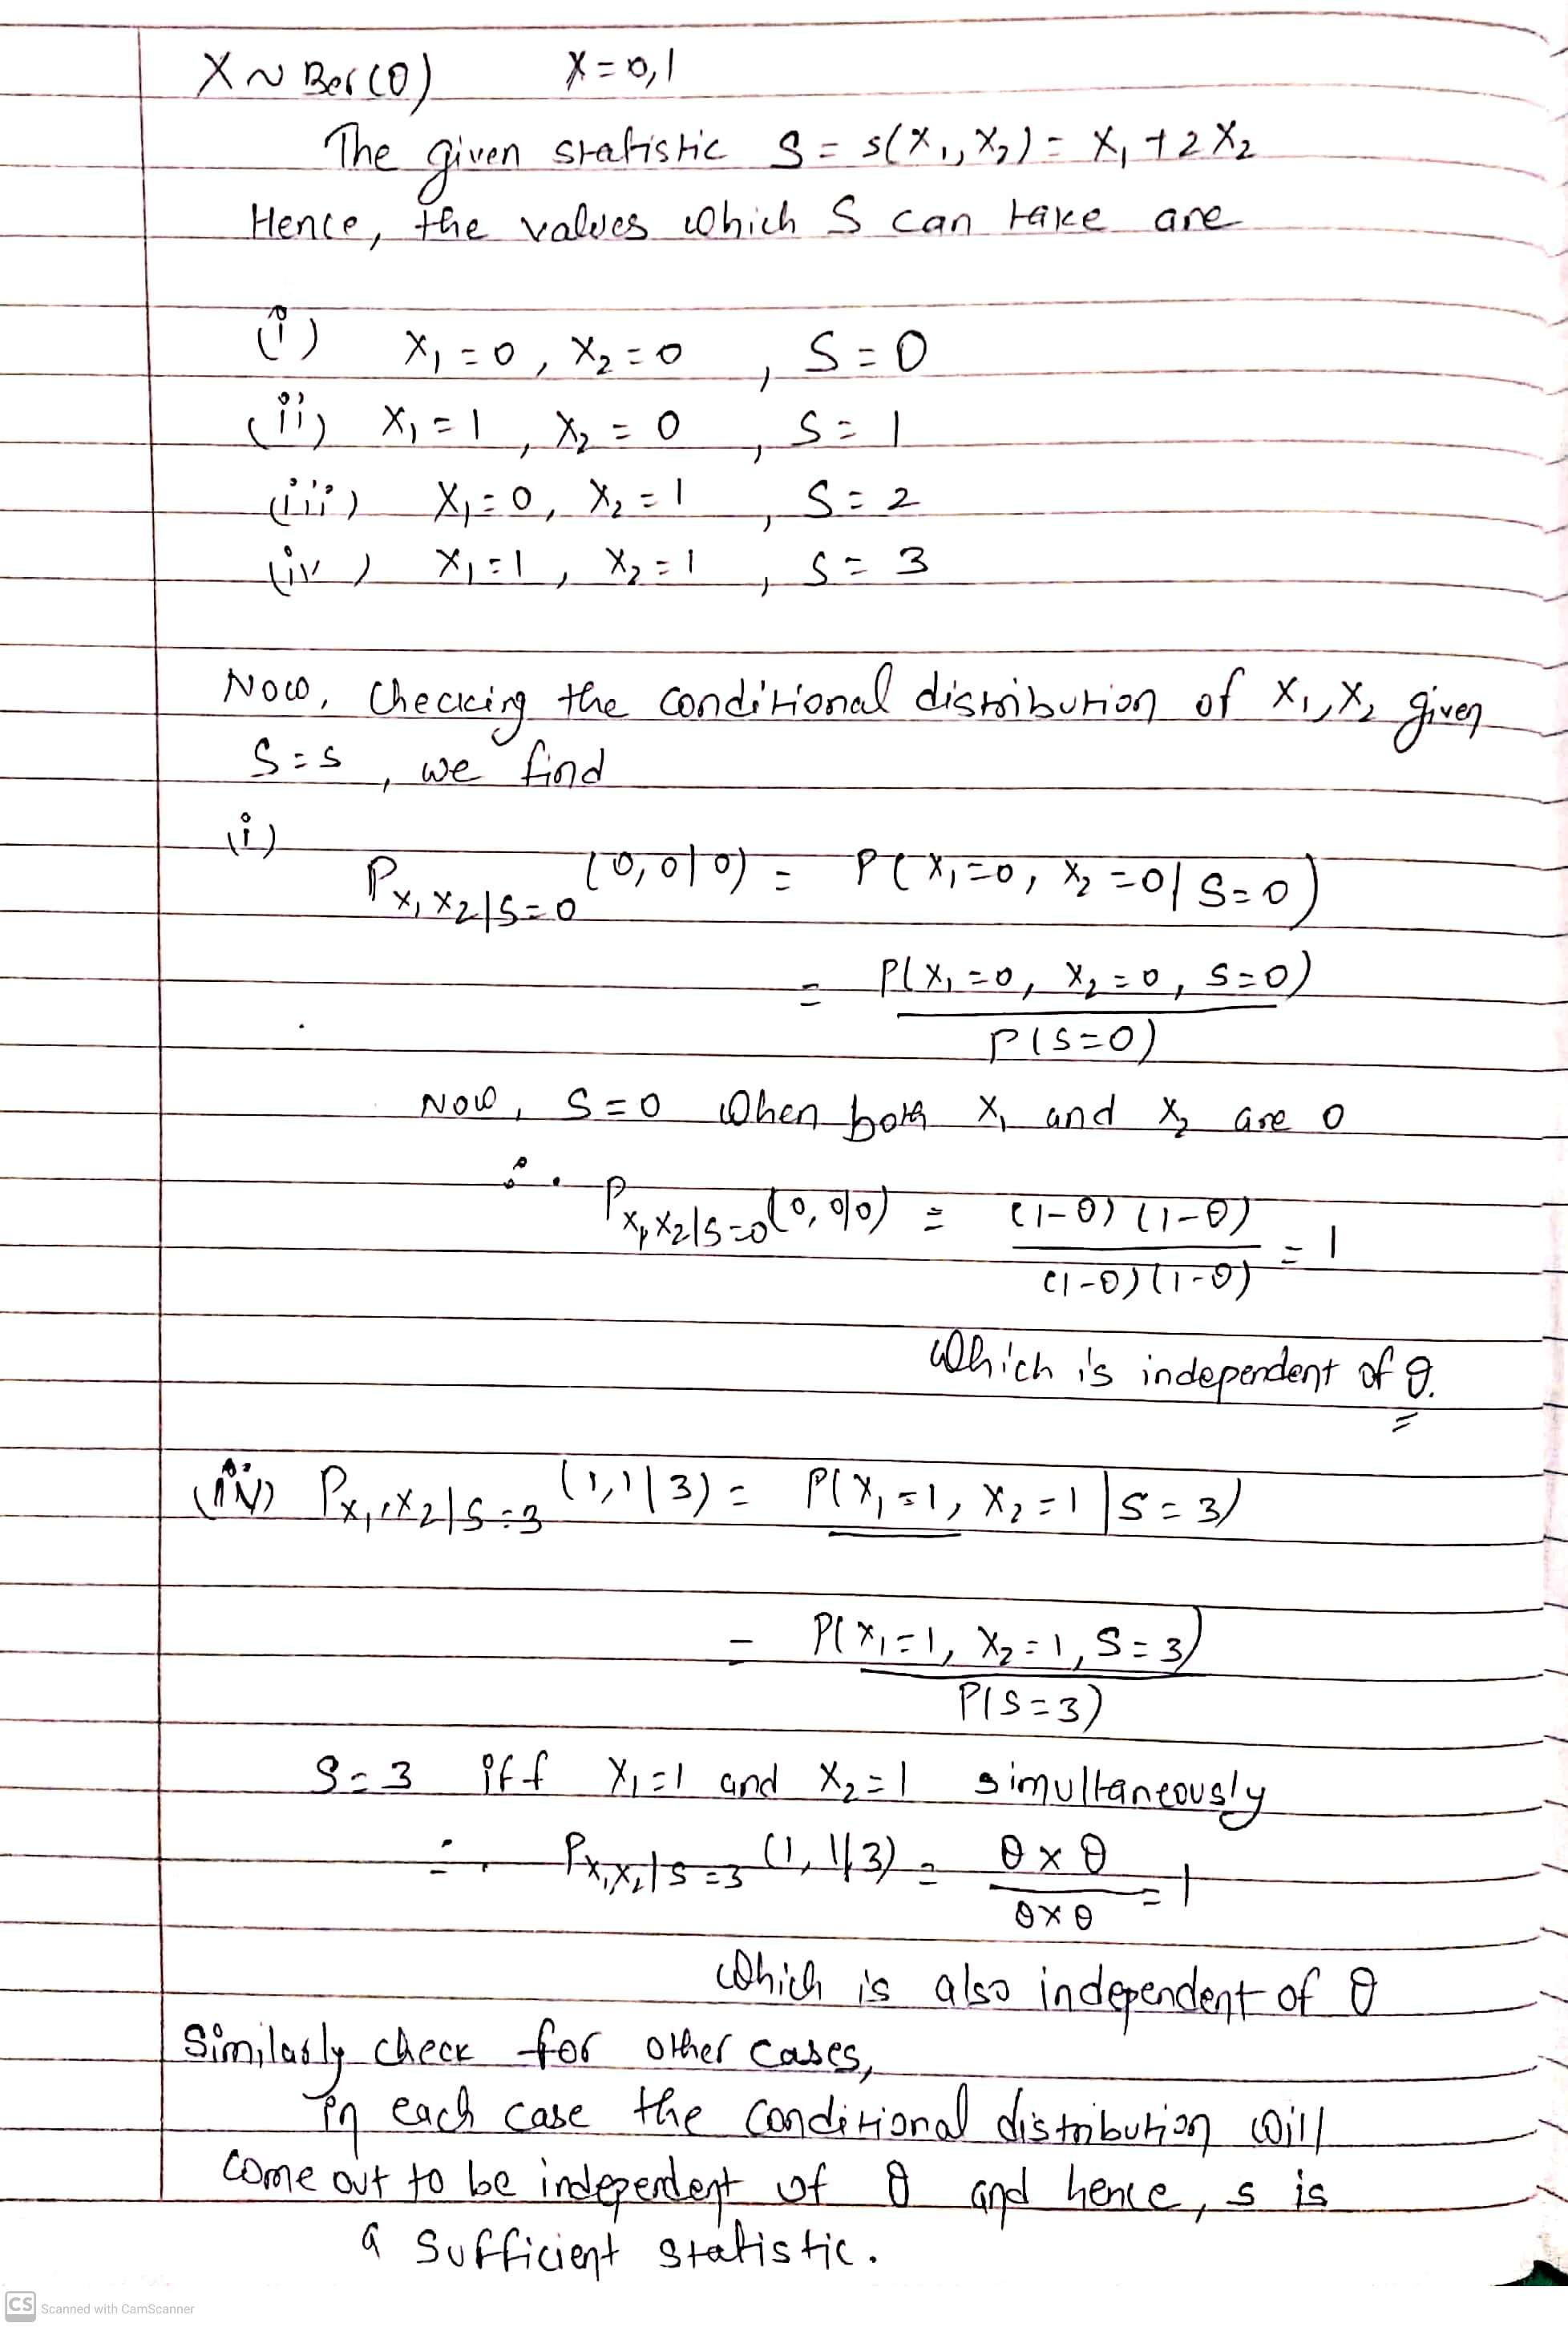 X ~ Ber(θ) X = 0, 1
The given statistic S = s(X₁, X₂) = X₁ + 2X₂
Hence, the values which S can take are
(i) X₁ = 0, X₂ = 0, S = 0
(ii) X₁ = 1, X₂ = 0, S = 1
(iii) X₁ = 0, X₂ = 1, S = 2
(iv) X₁ = 1, X₂ = 1, S = 3
Now, checking the conditional distribution of X₁, X₂ given
S = s, we find
(i)
P_{X₁ X₂|S=0} (0, 0|0) = P(X₁ = 0, X₂ = 0 | S = 0)
= P(X₁ = 0, X₂ = 0, S = 0)
P(S = 0)
Now, S = 0 when both X₁ and X₂ are 0
∴ P_{X₁, X₂|S=0} (0, 0|0) = (1-θ) (1-θ) = 1
(1-θ) (1-θ)
which is independent of θ.
(iv) P_{X₁, X₂|S=3} (1, 1|3) = P(X₁ = 1, X₂ = 1 | S = 3)
= P(X₁ = 1, X₂ = 1, S = 3)
P(S = 3)
S = 3 iff X₁ = 1 and X₂ = 1 simultaneously
∴ P_{X₁, X₂|S=3} (1, 1|3) = θ × θ = 1
θ × θ
which is also independent of θ
Similarly check for other cases,
in each case the conditional distribution will
come out to be independent of θ and hence, s is
a sufficient statistic.
CS Scanned with CamScanner